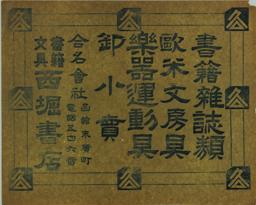 書籍雜誌類
歐米文房具
樂器運動具
卸小賣
合名會社
電話五四六番
書籍
文具
西堀書店